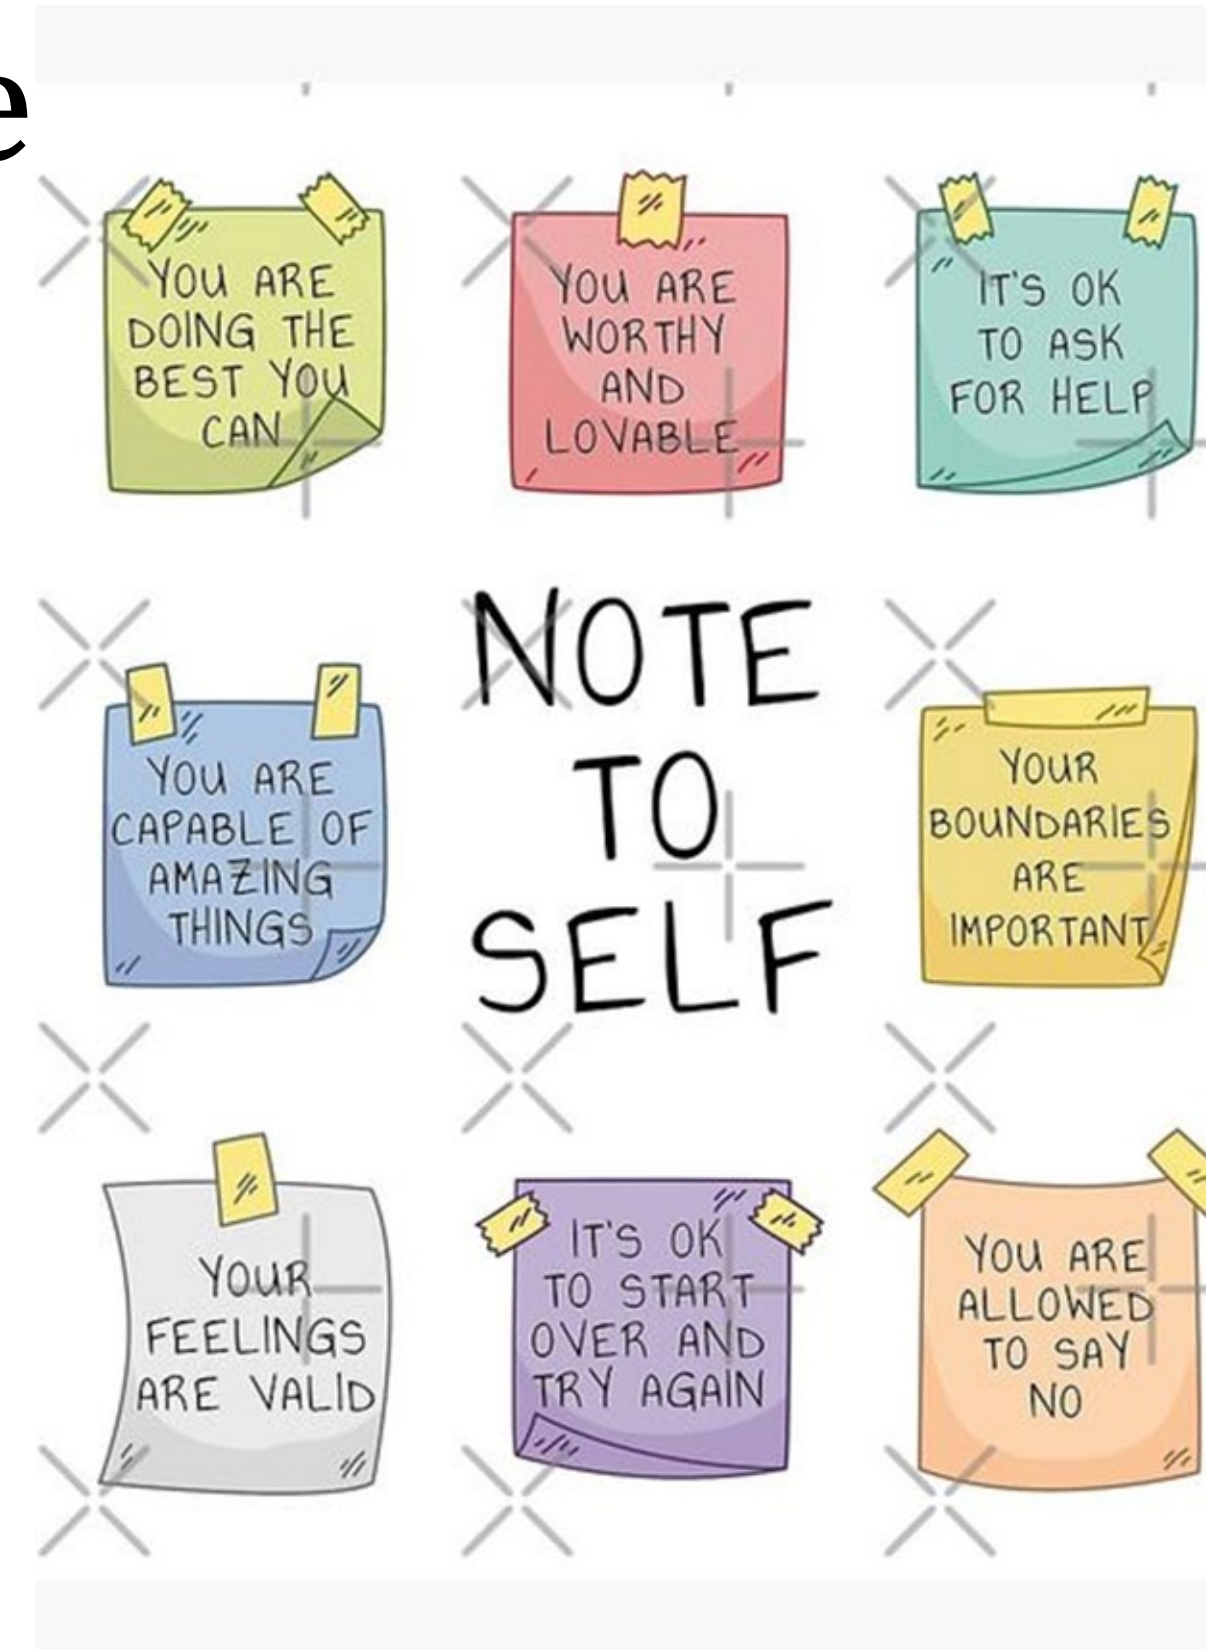 e
YOU ARE
DOING THE
BEST YOU
CAN
YOU ARE
WORTHY
AND
LOVABLE
IT'S OK
TO ASK
FOR HELP
YOU ARE
CAPABLE OF
AMAZING
THINGS
NOTE
TO
SELF
YOUR
BOUNDARIES
ARE
IMPORTANT
YOUR
FEELINGS
ARE VALID
IT'S OK
TO START
OVER AND
TRY AGAIN
YOU ARE
ALLOWED
TO SAY
NO